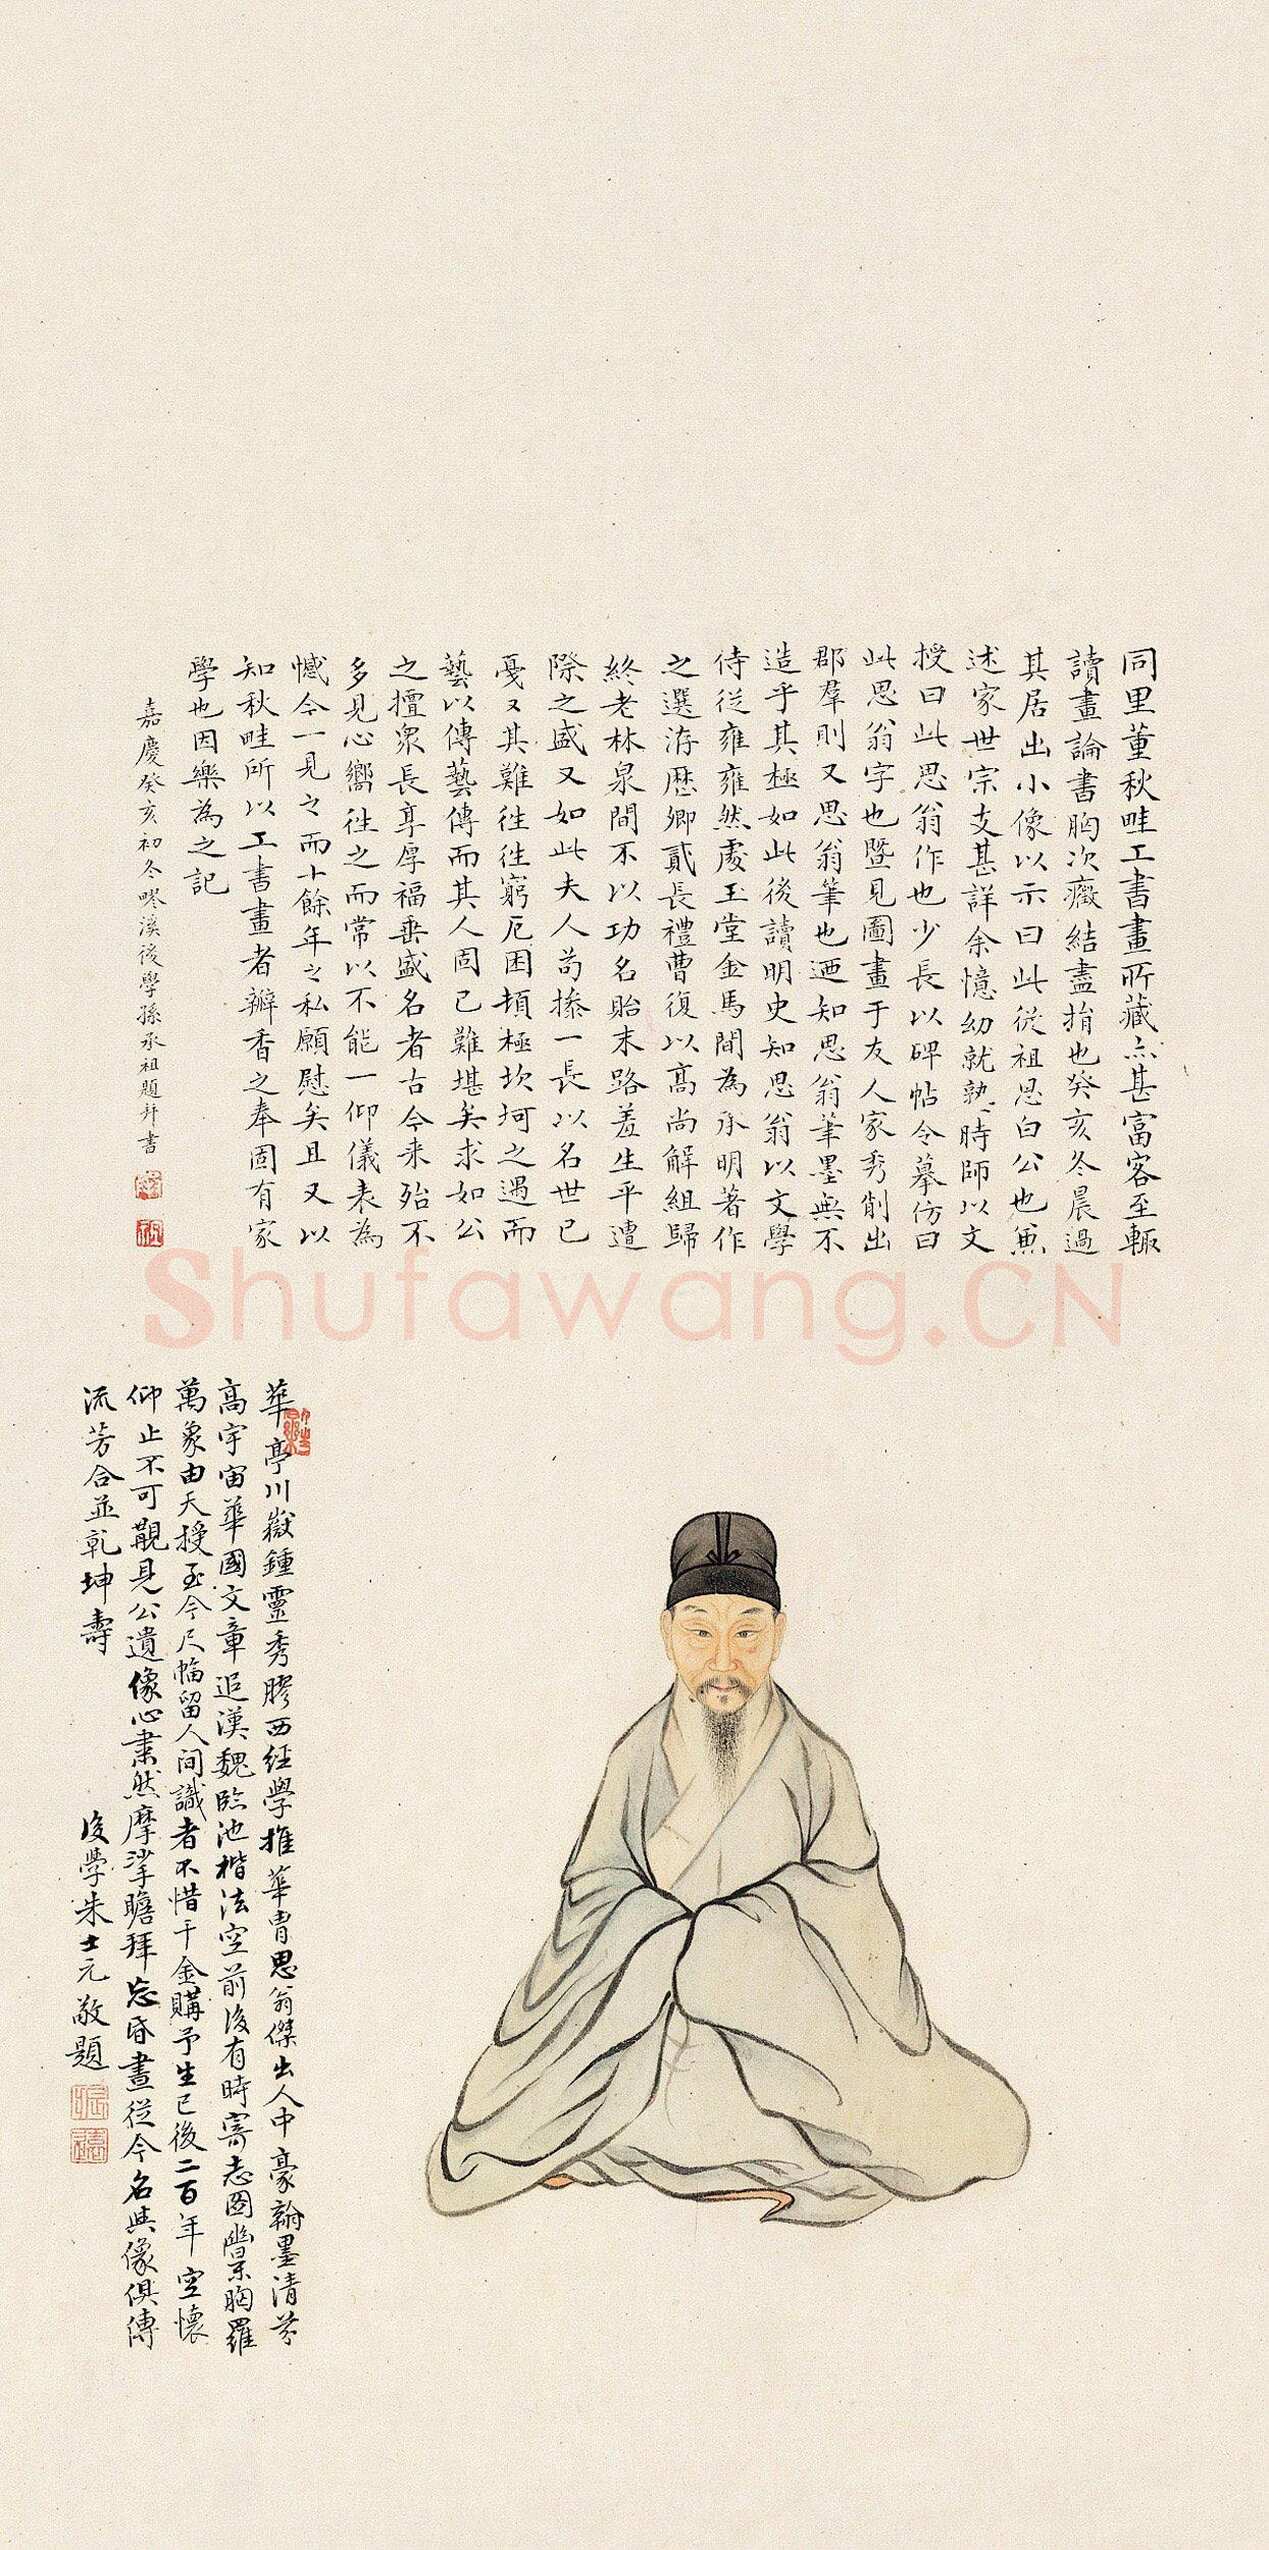 同里董秋畦工書畫所藏亦甚富客至輙
讀畫論書胸次癥結盡捐也癸亥冬晨過
其居出小像以示曰此從祖思白公也兼
述家世宗支甚詳余憶幼就塾時師以文
授曰此思翁作也少長以碑帖令摹仿曰
此思翁字也暨見圖畫于友人家秀削出
郡羣則又思翁筆也迺知思翁筆墨無不
造乎其極如此後讀明史知思翁以文學
侍從雍雍然處玉堂金馬間為承明著作
之選洊歷卿貳長禮曹復以高尚解組歸
終老林泉間不以功名貽末路羞生平遭
際之盛又如此夫人苟操一長以名世已
戞戞其難徃徃窮厄困頓極坎坷之遇而
藝以傳藝傳而其人固已難堪矣求如公
之擅衆長享厚福垂盛名者古今来殆不
多見心嚮徃之而常以不能一仰儀表為
憾今一見之而十餘年之私願慰矣且又以
知秋畦所以工書畫者瓣香之奉固有家
學也因樂為之記
嘉慶癸亥初冬後學孫承祖題并書
華亭川嶽鍾靈秀膠西經學推華冑思翁傑出人中豪翰墨清芬
高宇宙華國文章追漢魏臨池楷法空前後有時寄志圖胸羅
萬象由天授至今尺幅留人間識者不惜千金購予生已後二百年空懷
仰止不可覯見公遺像心肅然摩挲瞻拜忘昏晝從今名與像俱傳
流芳合並乾坤壽
後學朱士元敬題
Shufawang.CN